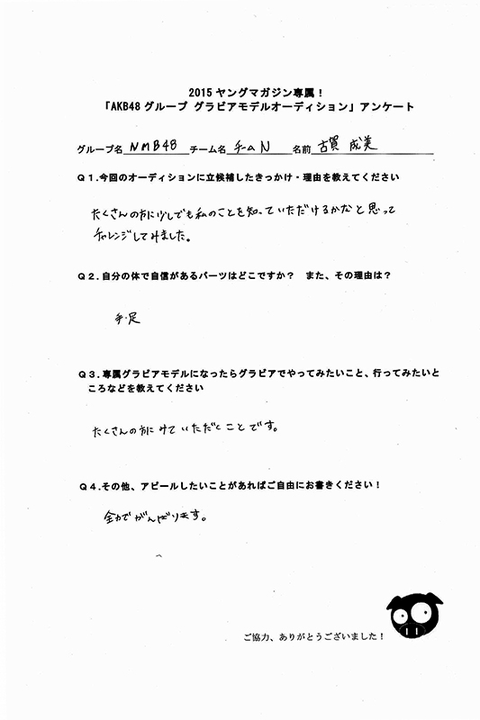 2015 ヤングマガジン専属！
「AKB48 グループ グラビアモデルオーディション」アンケート
グループ名 NMB48 チーム名 チームN 名前 古賀 成美
Ｑ１.今回のオーディションに立候補したきっかけ・理由を教えてください
たくさんの方に少しでも私のことを知っていただけるかなと思って
チャレンジしてみました。
Ｑ２.自分の体で自信があるパーツはどこですか？　また、その理由は？
手・足
Ｑ３.専属グラビアモデルになったらグラビアでやってみたいこと、行ってみたいと
ころなどを教えてください
たくさんの方にみていただくことです。
Ｑ４.その他、アピールしたいことがあればご自由にお書きください！
全力でがんばります。
ご協力、ありがとうございました！